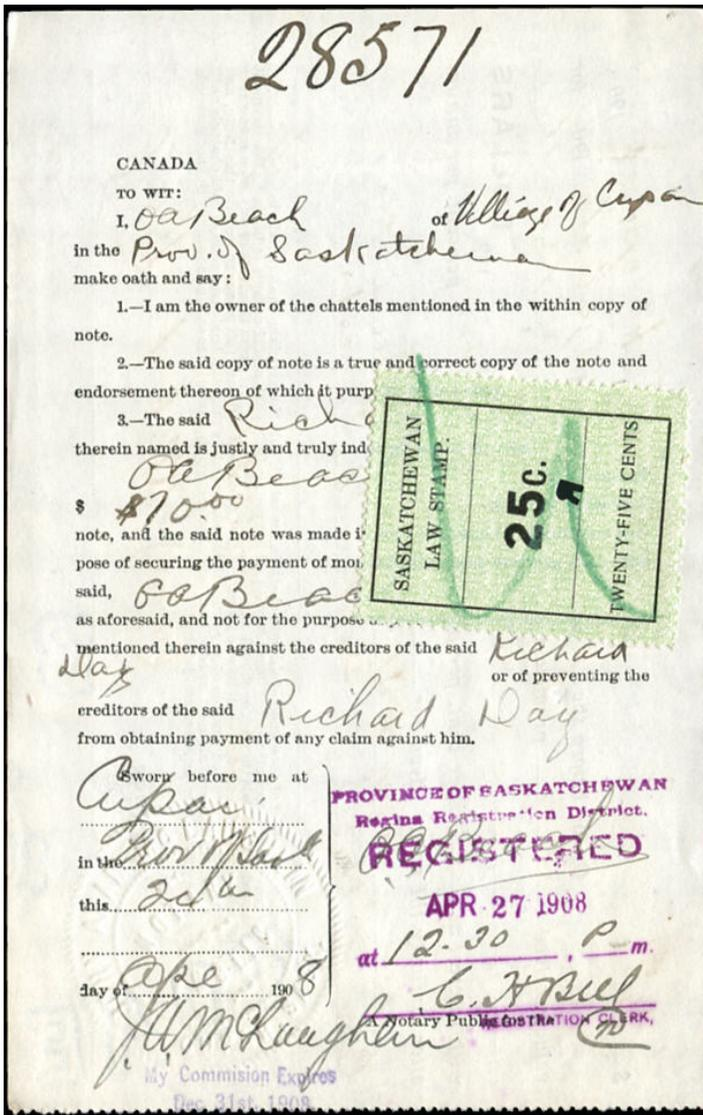 28571
CANADA
TO WIT:
I, OA Beach of Village of Cupar
in the Prov. of Saskatchewan
make oath and say:
1.—I am the owner of the chattels mentioned in the within copy of
note.
2.—The said copy of note is a true and correct copy of the note and
endorsement thereon of which it purp
3.—The said Rich
therein named is justly and truly ind
OA Beac
$ $70.00
note, and the said note was made i
pose of securing the payment of mo
said, OA Beac
as aforesaid, and not for the purpose
mentioned therein against the creditors of the said Richard
Day or of preventing the
creditors of the said Richard Day
from obtaining payment of any claim against him.
SASKATCHEWAN
LAW STAMP.
25c.
TWENTY-FIVE CENTS
Sworn before me at
Cupar
in the Prov of Sask
this
day of Apr 1908
J A McLaughlin
A Notary Public
My Commision Expires
Dec 31st, 1908
PROVINCE OF SASKATCHEWAN
Regina Registration District.
OA Beach
REGISTERED
APR 27 1908
at 12-30, P m.
C. H Bell
REGISTRATION CLERK,